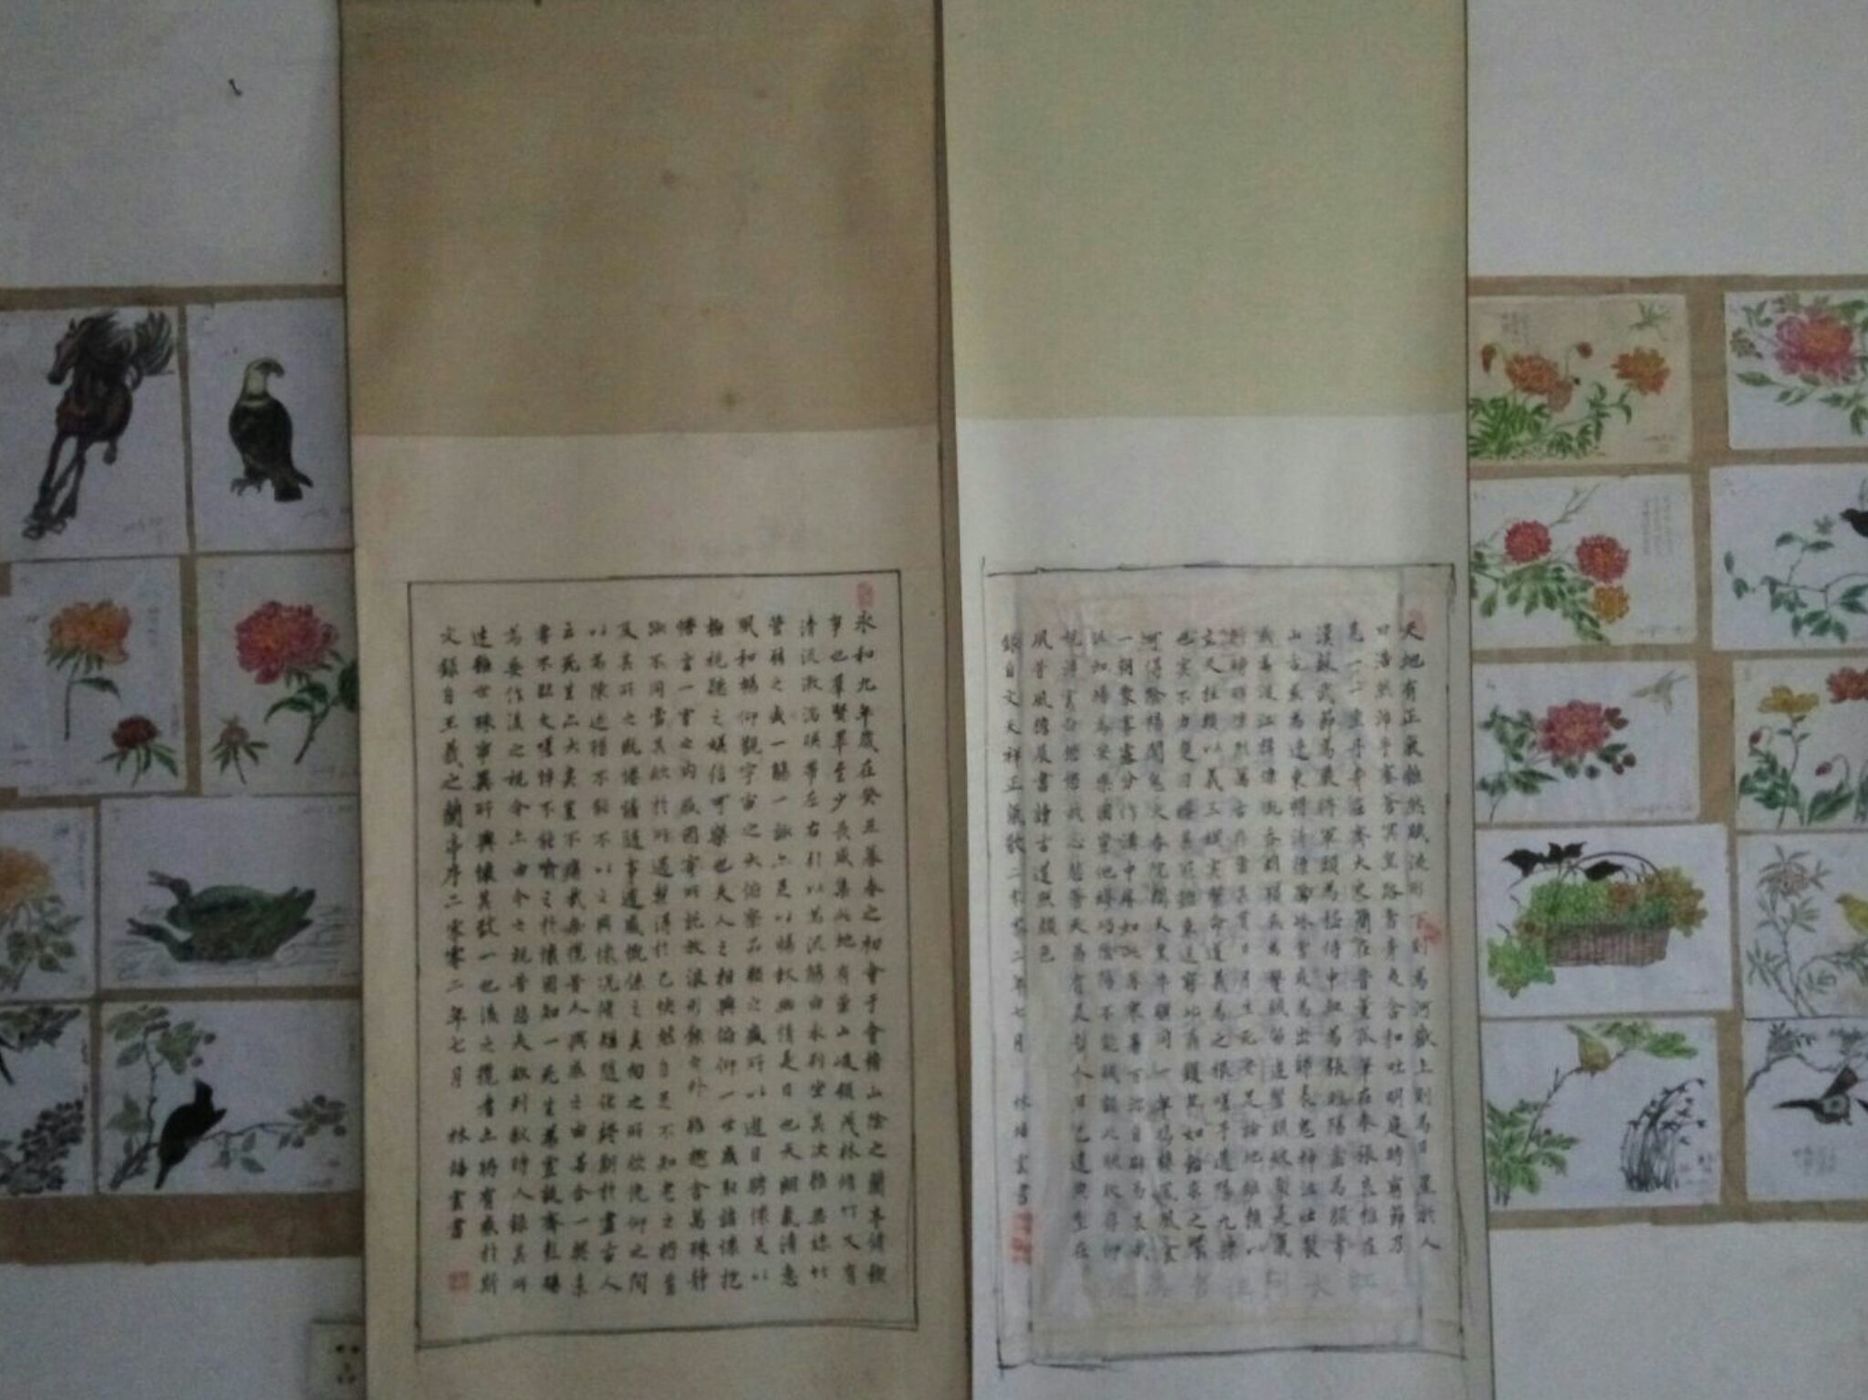 天地有正氣雜然賦流形下則為河嶽上則為日星於人
曰浩然沛乎塞蒼冥皇路當清夷含和吐明庭時窮節乃
見一一垂丹青在齊太史簡在晉董狐筆在秦張良椎在
漢蘇武節為嚴將軍頭為嵇侍中血為張睢陽齒為顏常
山舌或為遼東帽清操厲冰雪或為出師表鬼神泣壯裂
或為渡江楫慷慨吞胡羯或為擊賊笏逆豎頭破裂是氣
所磅礴凜烈萬古存當其貫日月生死安足論地維賴以
立天柱賴以尊三綱實繫命道義為之根嗟予遘陽九隸
也實不力楚囚纓其冠傳車送窮北鼎鑊甘如飴求之
可得陰房闃鬼火春院閟天黑牛驥同一皂雞棲鳳凰食
一朝蒙霧露分作溝中瘠如此再寒暑百沴自辟易哀哉
沮洳場為安樂國豈他繆巧陰陽不能賊顧此耿耿存仰
視浮雲白悠悠我心悲蒼天曷有極哲人日已遠典型在
夙昔風簷展書讀古道照顏色
錄自文天祥正氣歌二零零二年七月 林培雲書
永和九年歲在癸丑暮春之初會于會稽山陰之蘭亭脩禊
事也羣賢畢至少長咸集此地有崇山峻領茂林脩竹又有
清流激湍映帶左右引以為流觴曲水列坐其次雖無絲竹
管弦之盛一觴一詠亦足以暢敘幽情是日也天朗氣清惠
風和暢仰觀宇宙之大俯察品類之盛所以遊目騁懷足以
極視聽之娛信可樂也夫人之相與俯仰一世或取諸懷抱
悟言一室之內或因寄所託放浪形骸之外雖趣舍萬殊靜
躁不同當其欣於所遇暫得於己快然自足不知老之將至
及其所之既倦情隨事遷感慨係之矣向之所欣俛仰之間
以為陳迹猶不能不以之興懷況脩短隨化終期於盡古人
云死生亦大矣豈不痛哉每攬昔人興感之由若合一契未
嘗不臨文嗟悼不能喻之於懷固知一死生為虛誕齊彭殤
為妄作後之視今亦由今之視昔悲夫故列敘時人錄其所
述雖世殊事異所興懷其致一也後之攬者亦將有感於斯
文錄自王羲之蘭亭序二零零二年七月 林培雲書